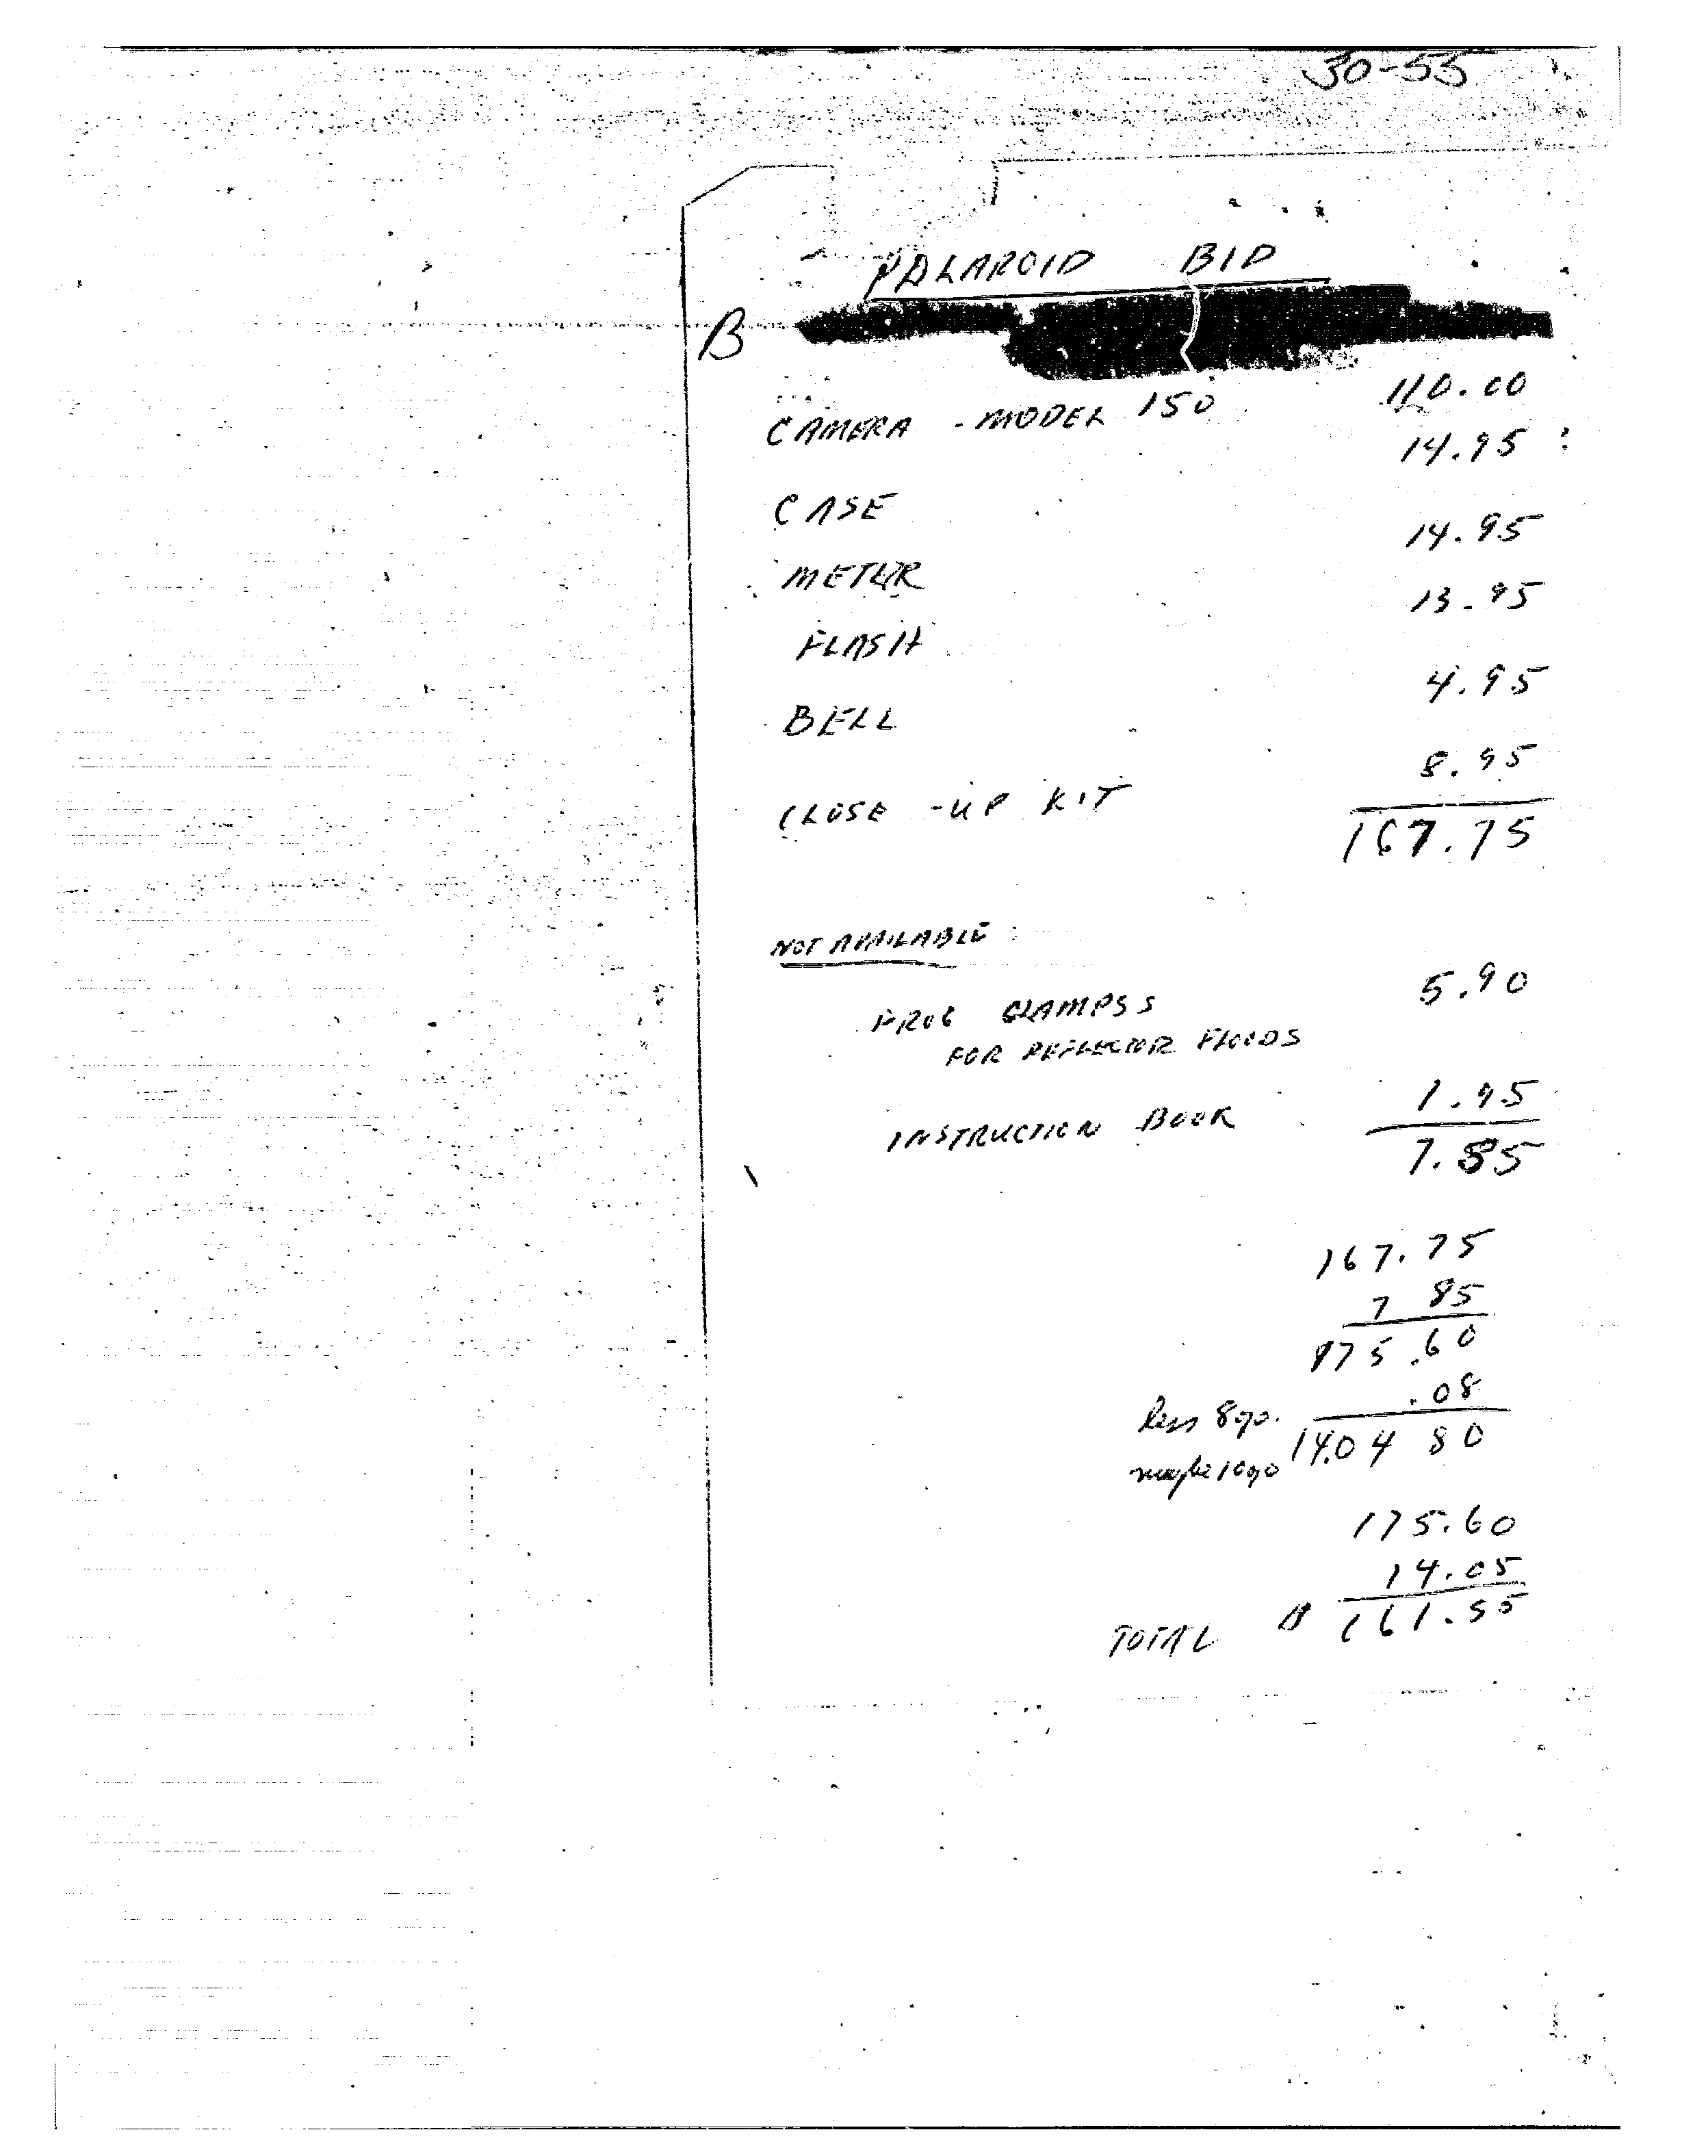 30-55
POLAROID BID
B
CAMERA - MODEL 150 110.00
14.95
CASE
14.95
METER
13.95
FLASH
4.95
BELL
8.95
CLOSE-UP KIT
167.75
NOT AVAILABLE
5.90
FROG CLAMPS
FOR REFLECTOR FLOODS
INSTRUCTION BOOK 1.95
7.85
167.75
7 85
175.60
less 8%. .08
maybe 10% 14.04 80
175.60
14.05
TOTAL 161.55